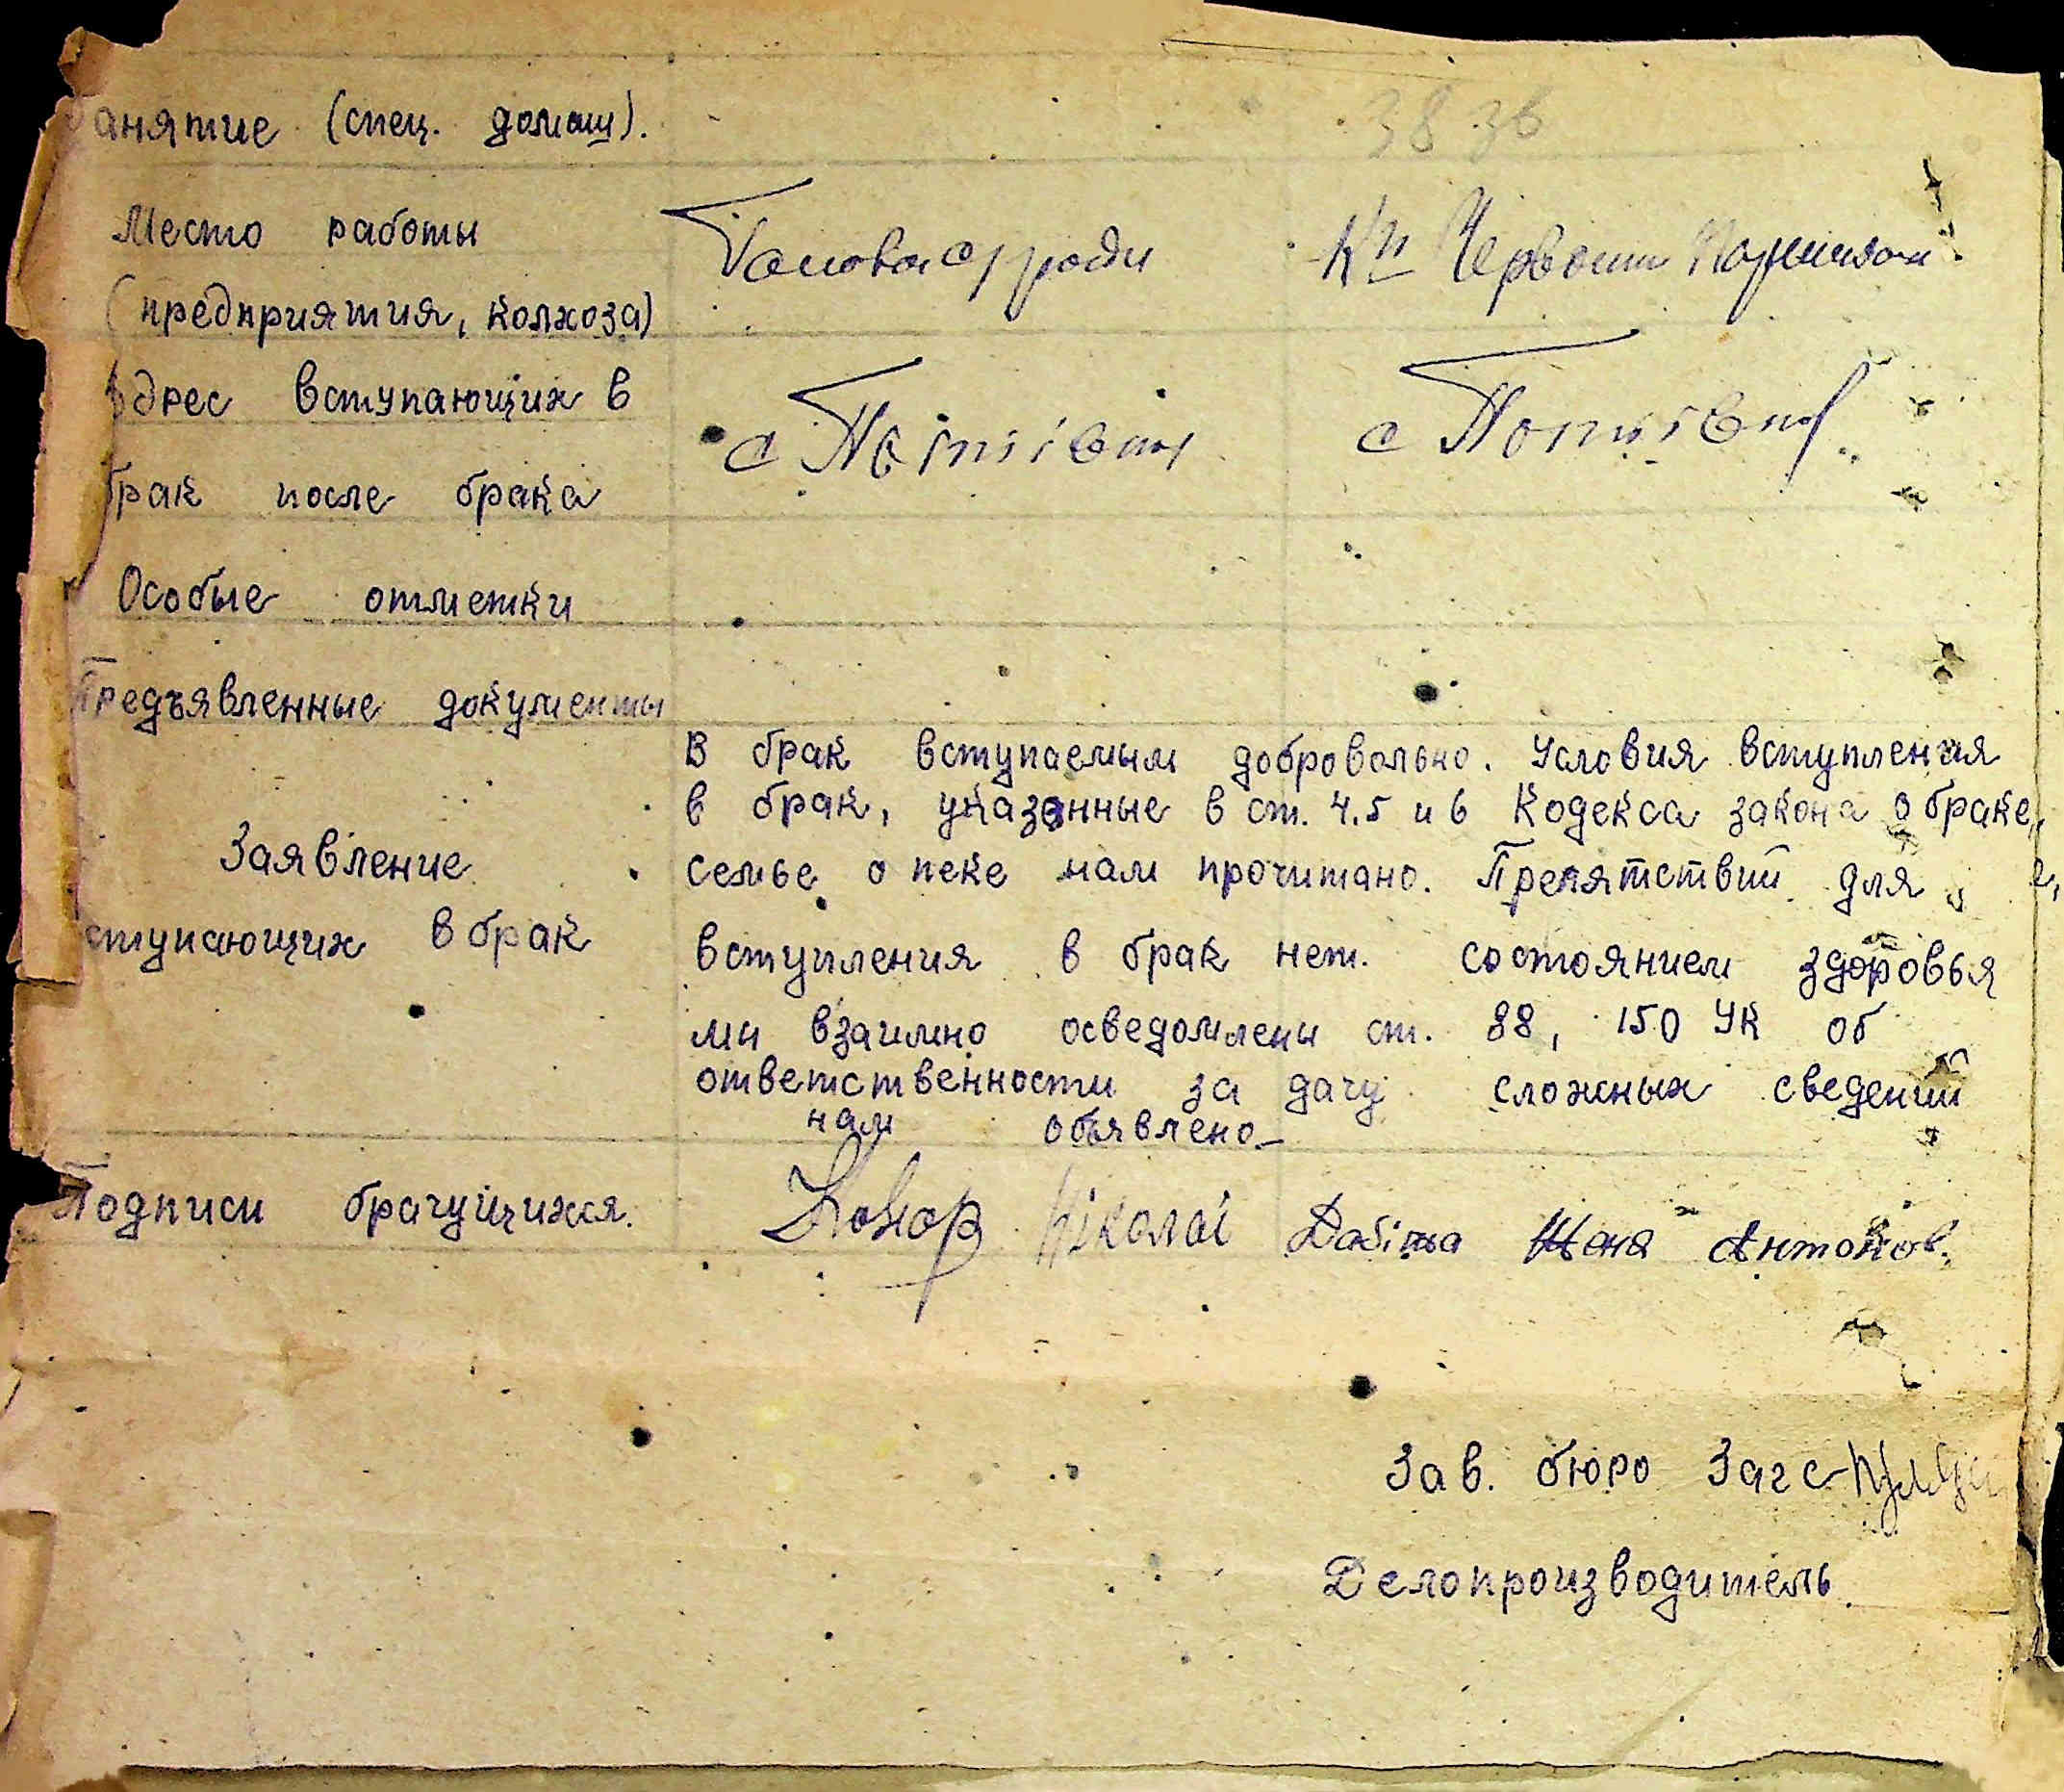 анятие (спец. домаш).
38 36
Место работы
Голова с/ради
Кп Червоний Партизан
(предприятия, колхоза)
дрес вступающих в
с
с
брак после брака
Особые отметки
Предъявленные документы
В брак вступаемым добровольно. Условия вступления
в брак, указанные в ст. 4.5 и 6 Кодекса закона о браке,
Заявление
семье о пеке нам прочитано. Препятствий для
ступающих в брак
вступления в брак нет. состоянием здоровья
ми взаимно осведомлены ст. 88, 150 УК об
ответственности за дачу сложных сведений
нам объявлено
Подписи брачущихся.
Ніколаі Дабіжа Женя Антонов.
Зав. бюро Загс
Делопроизводитель